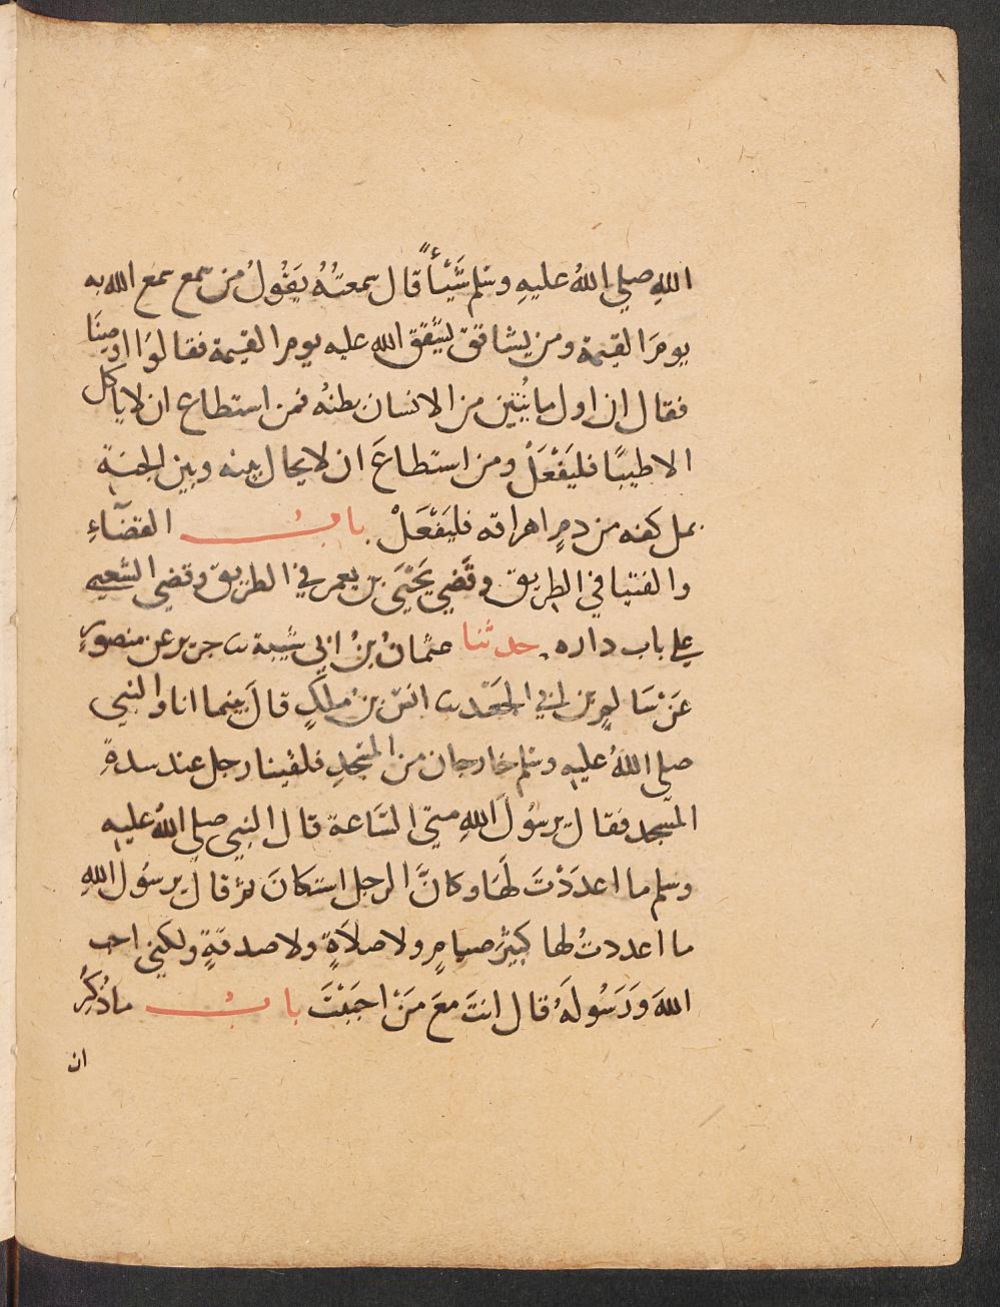 اللهِ صلى اللهُ عليهِ وسلم شَيْئاً قال سمعتُهُ يَقُولُ من سمع سمع الله به
يومَ القيمة ومن يشاقق يشقق الله عليه يوم القيمة فقالوا اوصِنَا
فقال ان اول ما يُنتِن من الانسان بطنهُ فمن استطاع ان لا ياكل
الا طيبًا فليَفْعَلْ ومن استطاعَ ان لا يحال بينه وبين الجنة
بمل كفه من دمٍ اهراقه فليَفْعَلْ بابُ القضَاءِ
والفتيا في الطريق وقَضي يَحْيَى بن يعمر في الطريق وقضي الشعبي
علي باب داره حدثنا عثمانُ بنُ ابي شيبة ثنا جرير عن منصورٍ
عَنْ سَالمِ بن ابي الجَعْد ثنا انس بنُ ملكٍ قالَ بينما انا والنبي
صلى اللهُ عليه وسلم خارجان من المسْجدِ فلقينا رجل عند سدةِ
المسْجد فقال يرسُولَ اللهِ متي السَّاعة قال النبي صلى اللهُ عليه
وسلم ما اعدَدْتَ لَهَا وكانَّ الرجل استكانَ ثم قالَ يرسُولَ اللهِ
ما اعددتُ لها كبيْرَ صيامٍ ولا صلَاةٍ ولا صدقةٍ ولكني احب
اللهَ وَرَسُولَهُ قال انتَ معَ مَنْ احبَبْتَ بابُ ماذُكِرَ
ان